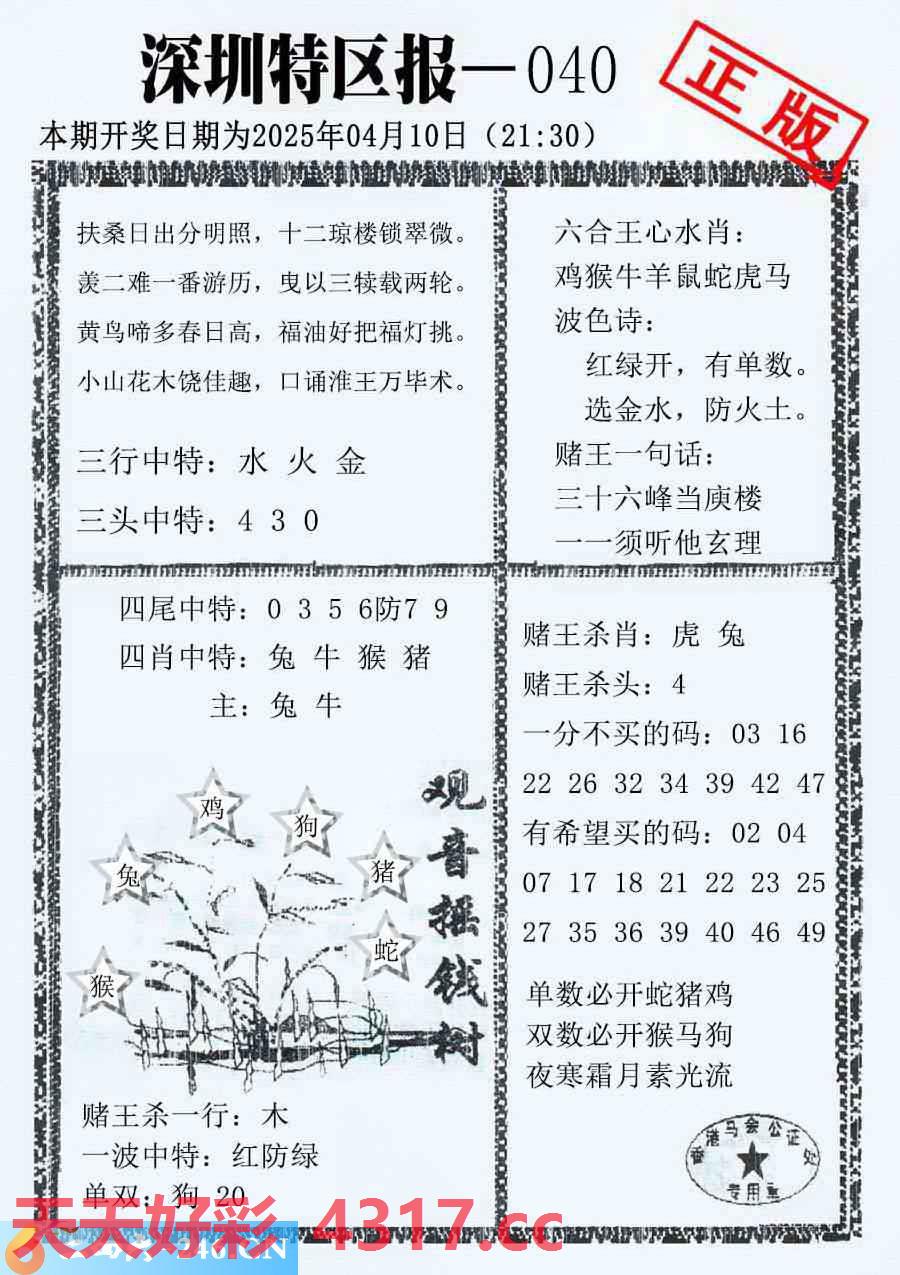 深圳特区报—040
正版
本期开奖日期为2025年04月10日（21:30）
扶桑日出分明照，十二琼楼锁翠微。
羡二难一番游历，曳以三犊载两轮。
黄鸟啼多春日高，福油好把福灯挑。
小山花木饶佳趣，口诵淮王万毕术。
三行中特：水 火 金
三头中特：4 3 0
六合王心水肖：
鸡猴牛羊鼠蛇虎马
波色诗：
红绿开，有单数。
选金水，防火土。
赌王一句话：
三十六峰当庾楼
一一须听他玄理
四尾中特：0 3 5 6防7 9
四肖中特：兔 牛 猴 猪
主：兔 牛
观音摇钱树
鸡
狗
兔
猪
蛇
猴
赌王杀一行：木
一波中特：红防绿
单双：狗 20
赌王杀肖：虎 兔
赌王杀头：4
一分不买的码：03 16
22 26 32 34 39 42 47
有希望买的码：02 04
07 17 18 21 22 23 25
27 35 36 39 40 46 49
单数必开蛇猪鸡
双数必开猴马狗
夜寒霜月素光流
香港马会公证处
专用章
天天好彩 4317.cc